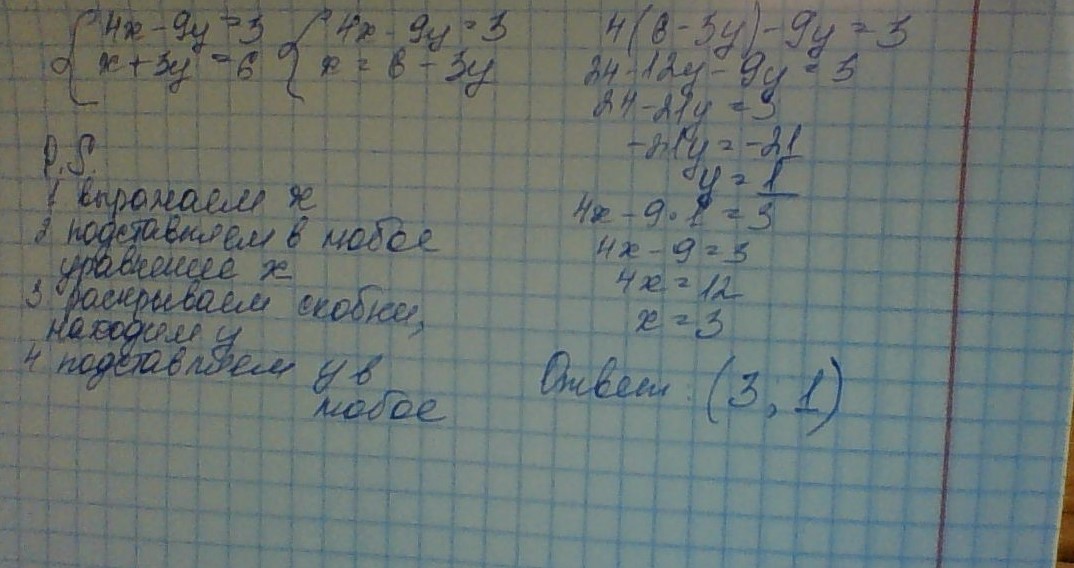 {4x - 9y = 3
x + 3y = 6
{4x - 9y = 3
x = 6 - 3y
P.S.
1 выражаем x
2 подставляем в любое
уравнение x
3 раскрываем скобки,
находим y
4 подставляем y в
любое
4(6 - 3y) - 9y = 3
24 - 12y - 9y = 3
24 - 21y = 3
-21y = -21
y = 1
4x - 9·1 = 3
4x - 9 = 3
4x = 12
x = 3
Ответ: (3; 1)